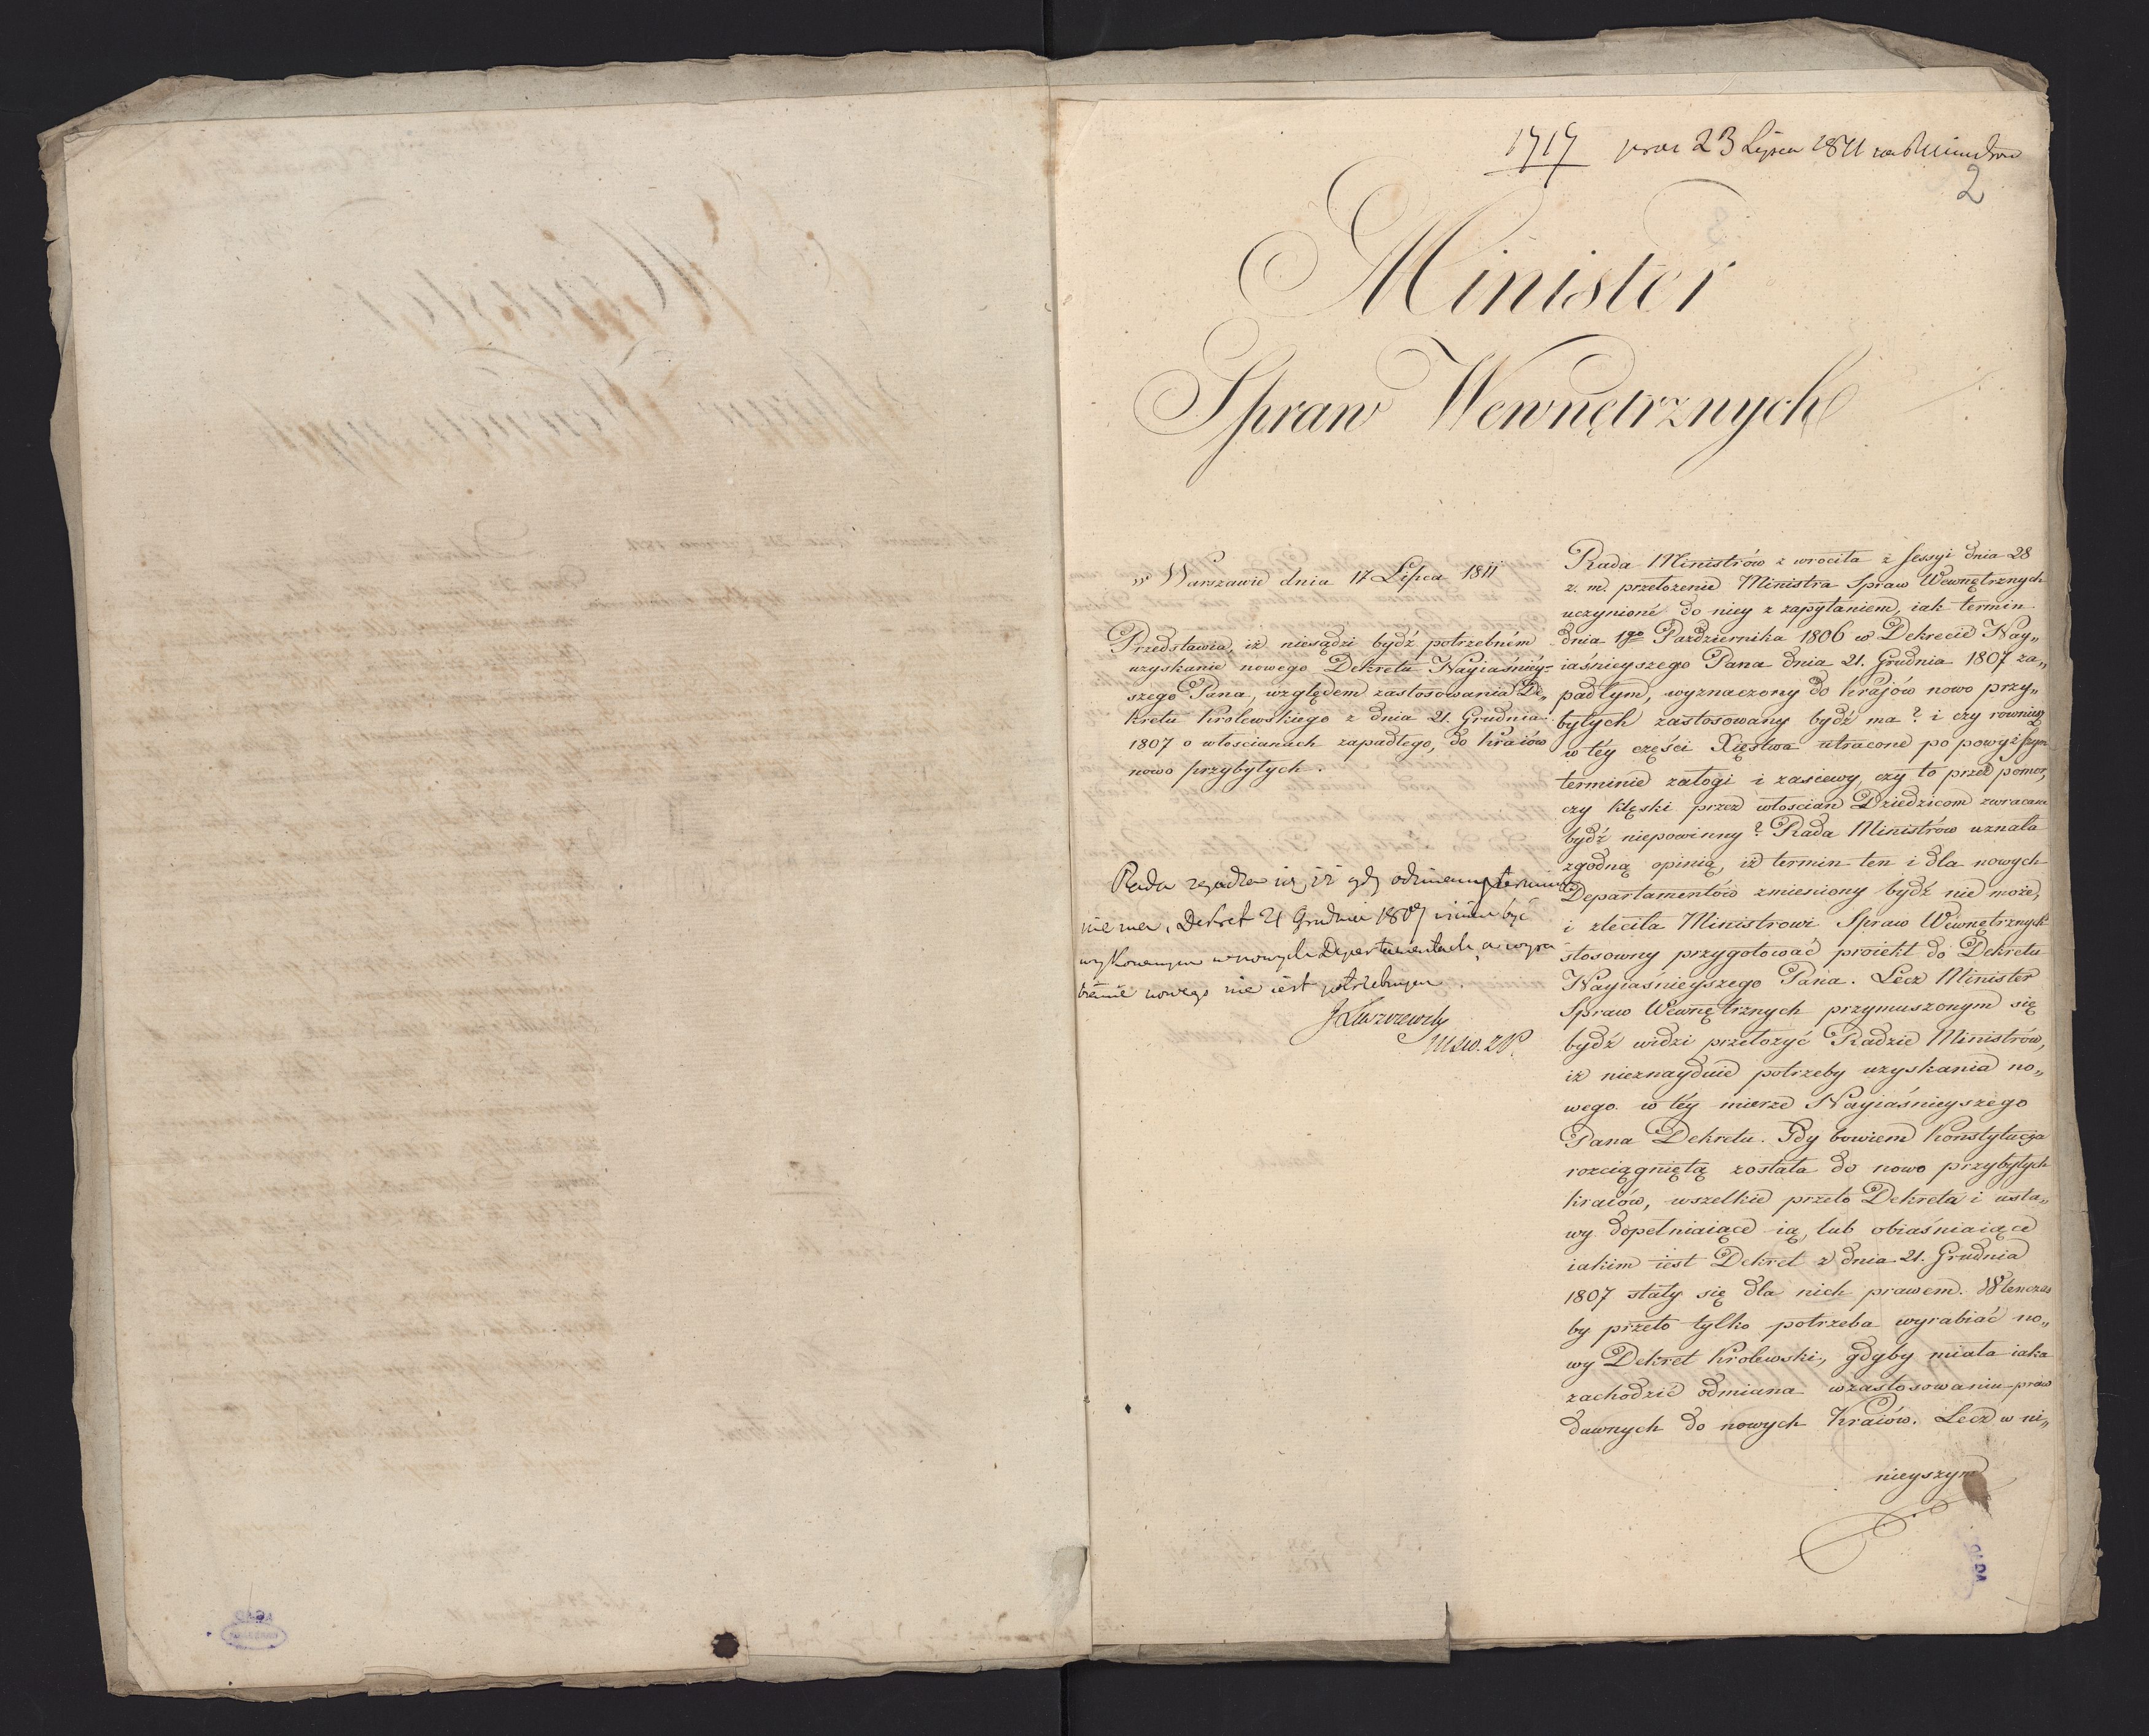 1717 23 Lipca 1811
2
Minister
Spraw Wewnętrznych
w Warszawie dnia 17 Lipca 1811
Przedstawia, iż niesądzi bydź potrzebném
uzyskanie nowego Dekretu Nayiaśniéy-
szego Pana, względem zastosowania De„
kretu Królewskiego z dnia 21. Grudnia
1807 o włoscianach zapadłego, do Kraiów
nowo przybyłych.
Rada zgadza się, iż gdy odmiany terminu
nie ma, Dekret 21 Grudnia 1807 winien być
wykonanym w nowych Departamentach, a wyra
bianie nowego nie iest potrzebnym.
JŁuszczewski
Rada Ministrów zwrociła z Sessyi dnia 28
z. m. przełożenie Ministra Spraw Wewnętrznych
uczynioné do niey z zapytaniem, iak termin
dnia 1go Października 1806 w Dekrecie Nay„
iaśnieyszego Pana dnia 21. Grudnia 1807 za„
padłym, wyznaczony do Krajów nowo przy„
byłych zastosowany bydź ma? i czy również
w téy części Xięstwa utracone po powyższym
terminie załogi i zasiewy, czy to przez pomor,
czy klęski przez włoscian Dziedzicom zwracane
bydź niepowinny? Rada Ministrów uznała
zgodną opinią, iż termin ten i dla nowych
Departamentów zmieniony bydź nie może,
i zleciła Ministrowi Spraw Wewnętrznych
stosowny przygotować proiekt do Dekretu
Nayiaśnieyszego Pana. Lecz Minister
Spraw Wewnętrznych przymuszonym się
bydź widzi przełożyć Radzie Ministrów,
iż nieznayduie potrzeby uzyskania no„
wego w téy mierze Nayiaśnieyszego
Pana Dekretu. Gdy bowiem Konstytucja
rozciągniętą została do nowo przybyłych
kraiów, wszelkie przeto Dekreta i usta„
wy dopełniaiące ią, lub obiaśniaiące
iakim iest Dekret z dnia 21. Grudnia
1807 stały się dla nich prawem. Wtenczas
by przeto tylko potrzeba wyrabiać no„
wy Dekret Krolewski, gdyby miała iaka
zachodzić odmiana w zastosowaniu praw
dawnych do nowych Kraiów. Lecz w ni„
nieyszym